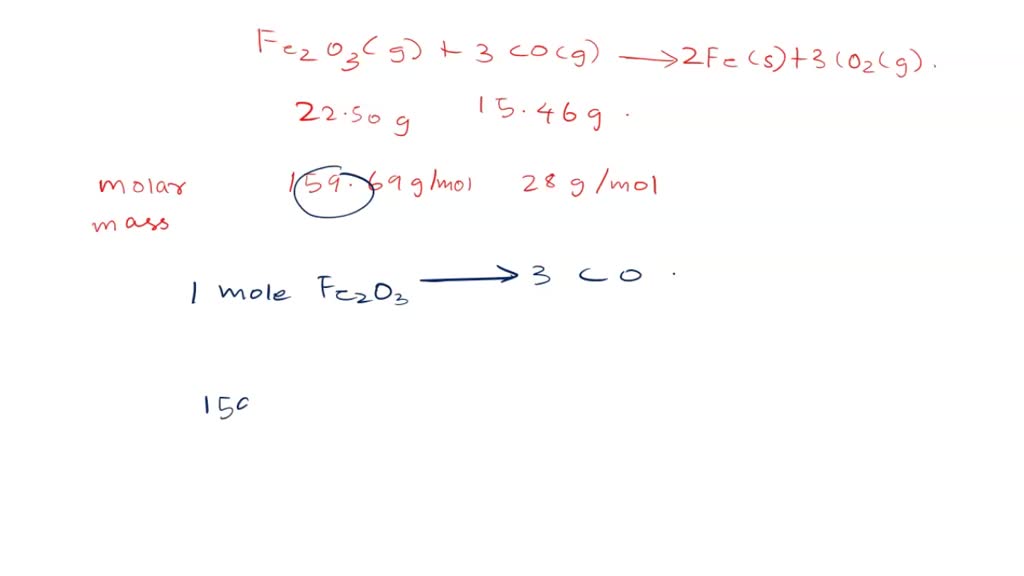 Fe2O3(g) + 3 CO(g) → 2Fe(s)+3CO2(g).
22.50 g 15.46 g .
molar 159.69 g/mol 28 g/mol
mass
1 mole Fe2O3 → 3 CO .
159